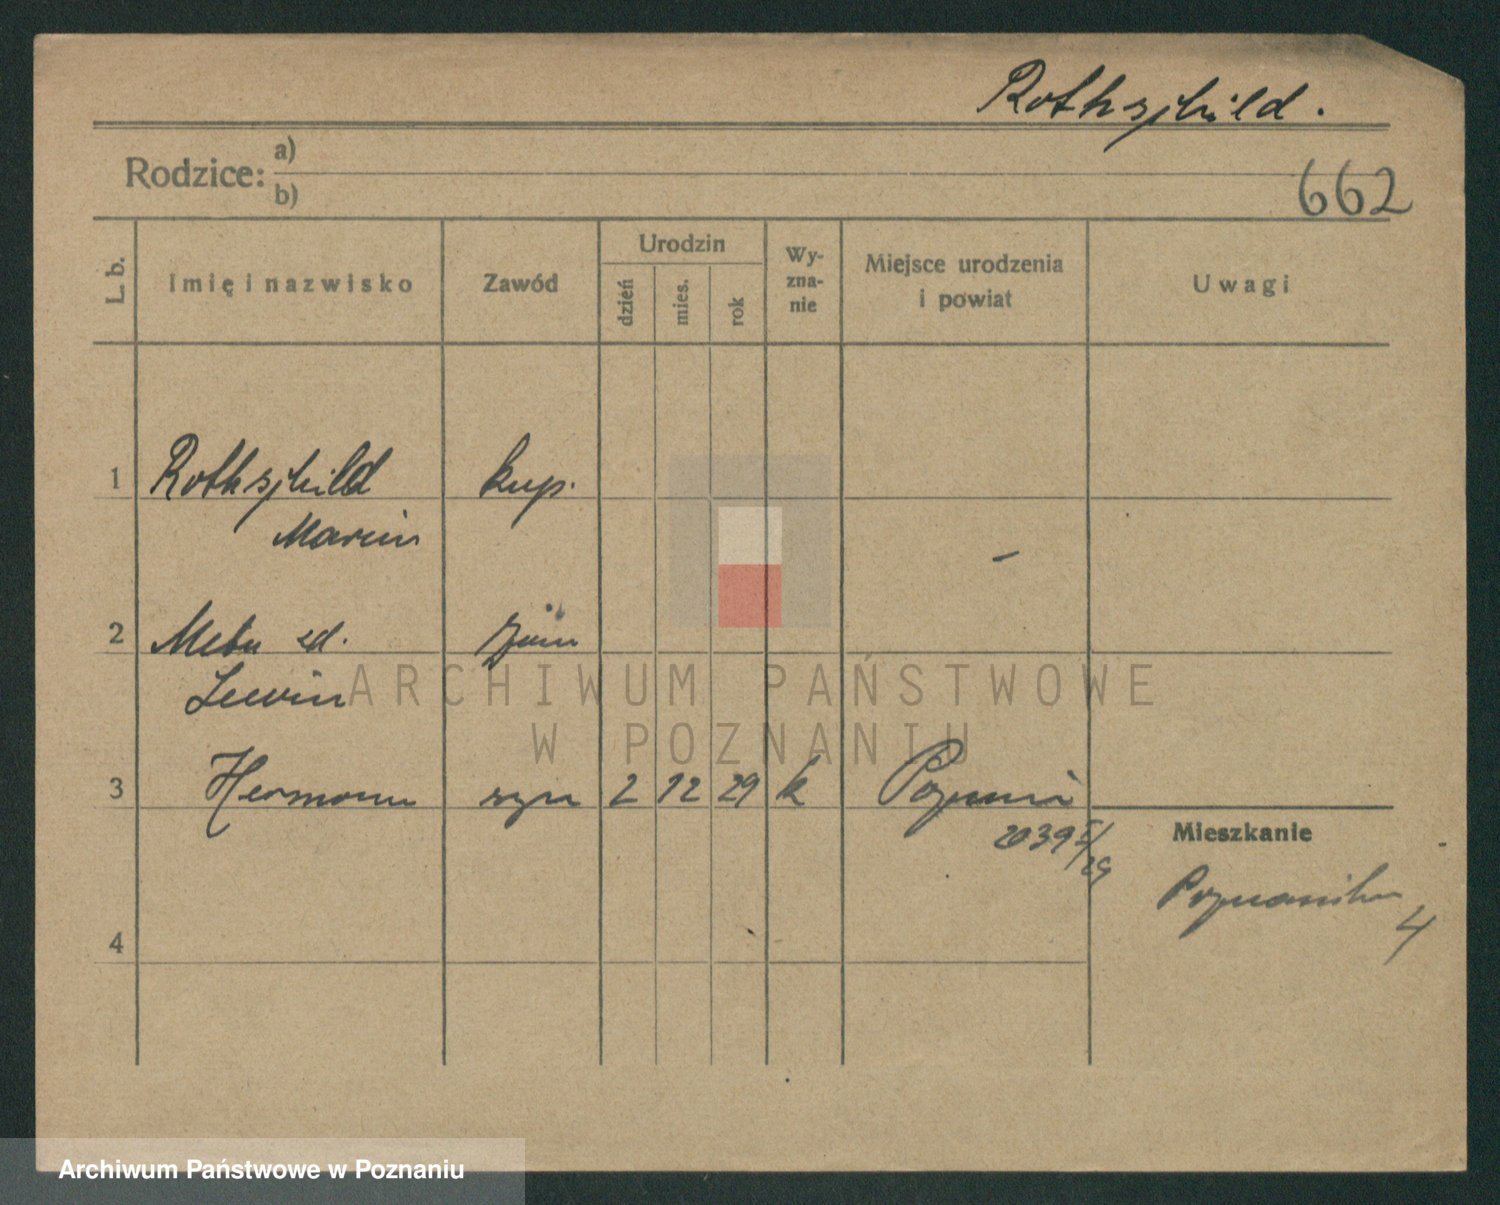 Rothschild.
Rodzice: a)
b)
662
L. b.
Imię i nazwisko
Zawód
Urodzin
dzień
mies.
rok
Wy-
zna-
nie
Miejsce urodzenia
i powiat
Uwagi
1 Rothschild kup.
Marcin
–
2 Meta
Lewin
3 Hermann syn 2 12 29 k Poznań
2039
Mieszkanie
4
4
ARCHIWUM PAŃSTWOWE
W POZNANIU
Archiwum Państwowe w Poznaniu